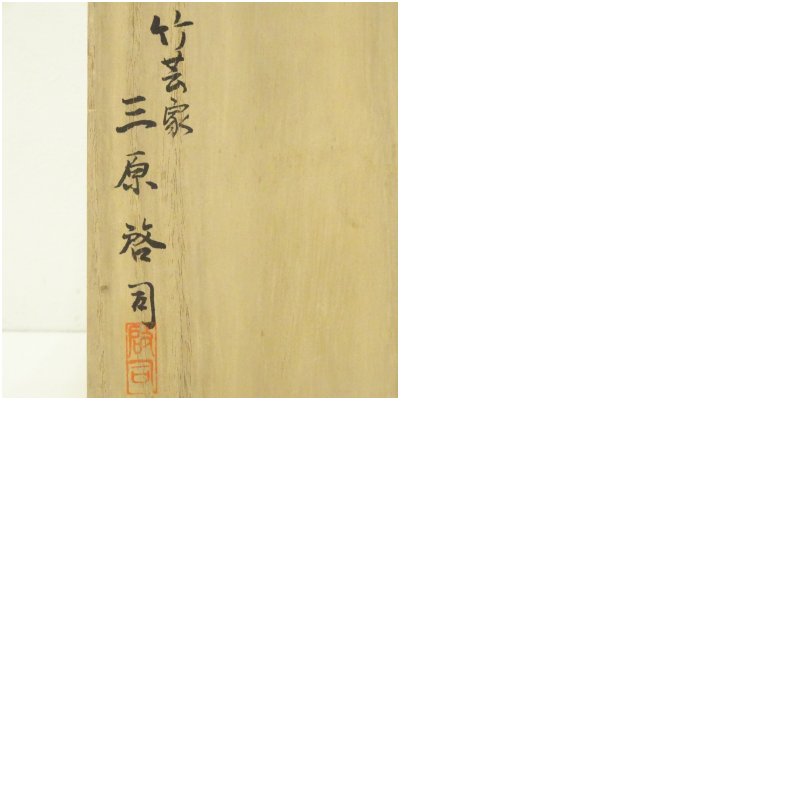 竹芸家
三原啓司
啓司